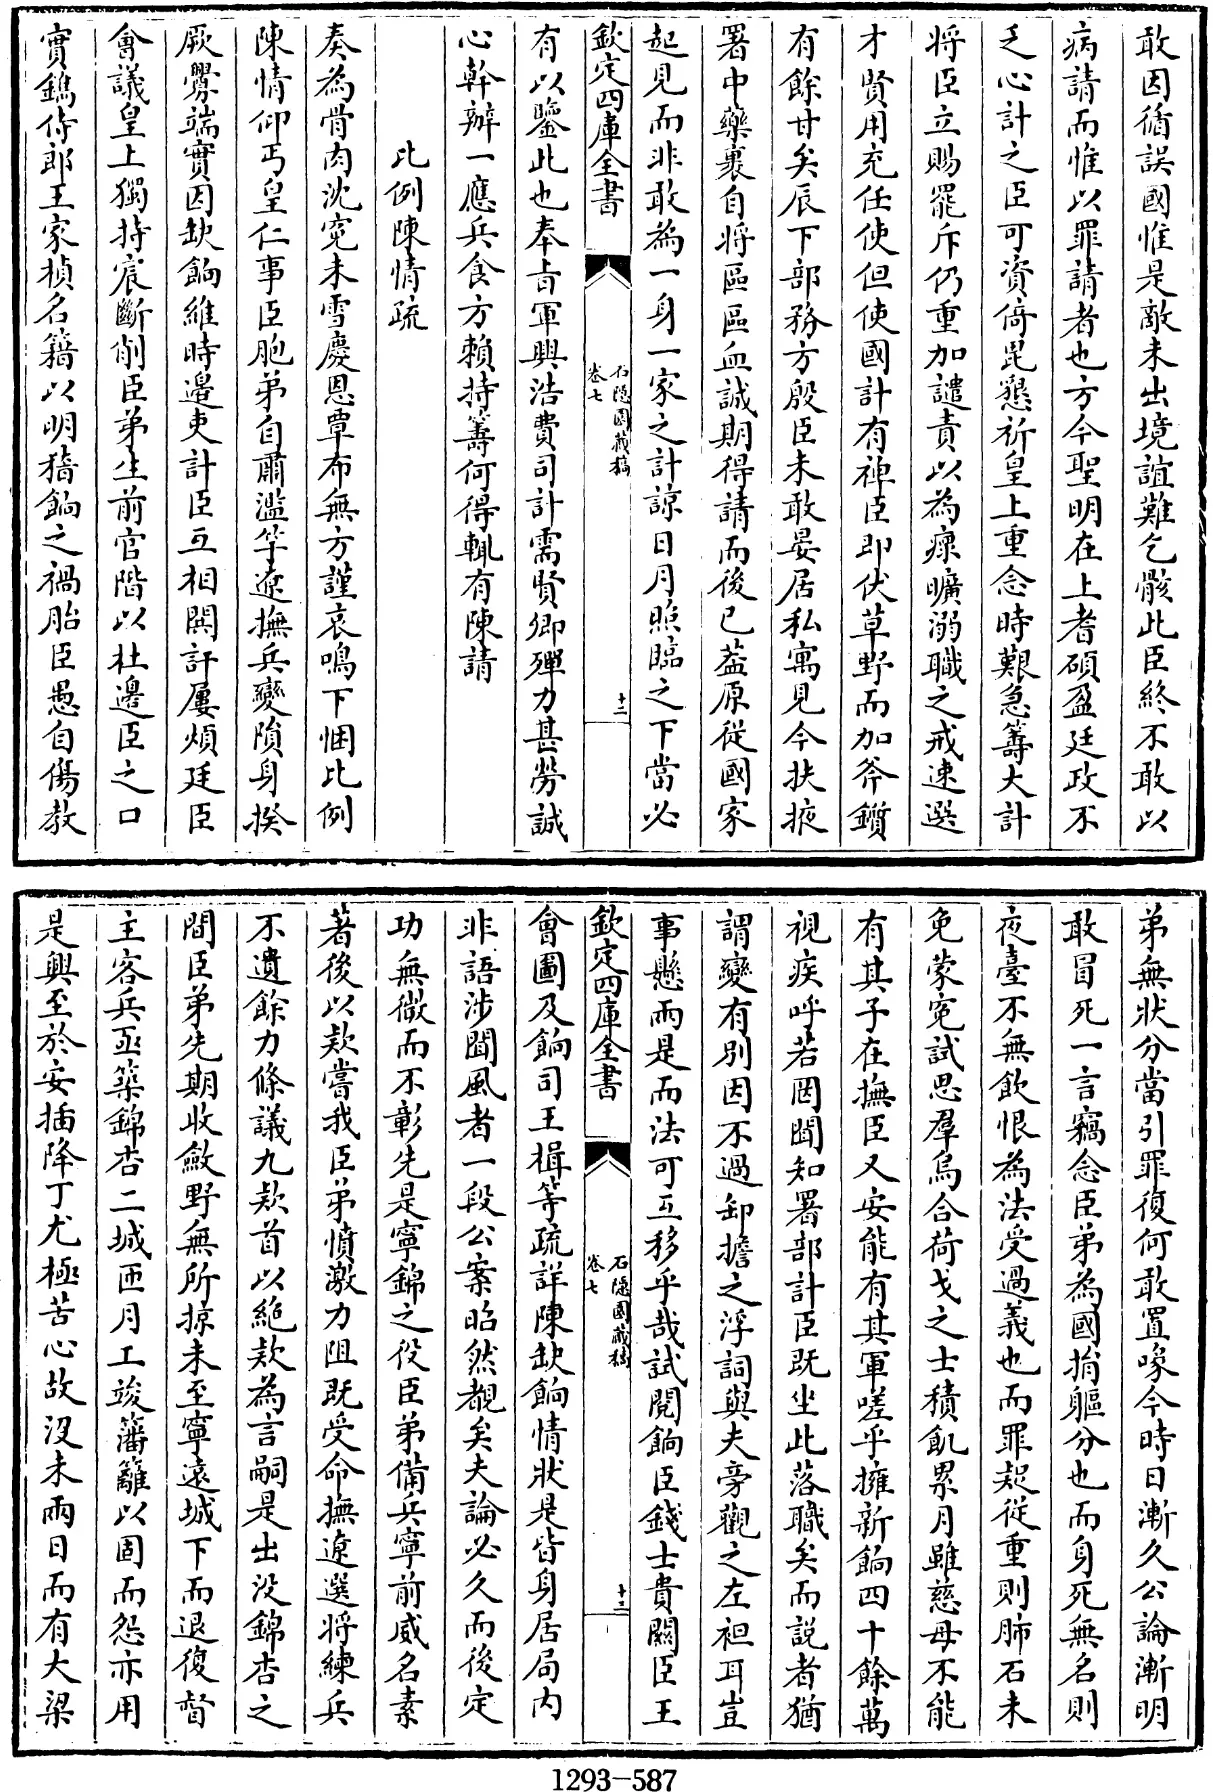 敢因循誤國惟是敵未出境誼難乞骸此臣終不敢以
病請而惟以罪請者也方今聖明在上耆碩盈廷政不
乏心計之臣可資倚毘懇祈皇上重念時艱急籌大計
將臣立賜罷斥仍重加譴責以為瘝曠溺職之戒速選
才賢用充任使但使國計有裨臣即伏草野而加斧鑕
有餘甘矣辰下部務方殷臣未敢晏居私寓見今扶掖
署中藥裹自將區區血誠期得請而後已葢原從國家
起見而非敢為一身一家之計諒日月照臨之下當必
欽定四庫全書
石隱園藏稿
卷七
十二
有以鑒此也奉旨軍興浩費司計需賢卿殫力甚勞誠
心幹辦一應兵食方賴持籌何得輒有陳請
此例陳情疏
奏為骨肉沈寃未雪慶恩覃布無方謹哀鳴下悃比例
陳情仰丐皇仁事臣胞弟自肅濫竽遼撫兵變隕身揆
厥釁端實因缺餉維時邊吏計臣互相鬨訐屢煩廷臣
會議皇上獨持宸斷削臣弟生前官階以杜邊臣之口
實鐫侍郎王家楨名籍以明稽餉之禍胎臣愚自傷教
弟無狀分當引罪復何敢置喙今時日漸久公論漸明
敢冒死一言竊念臣弟為國捐軀分也而身死無名則
夜臺不無飲恨為法受過義也而罪起從重則肺石未
免蒙寃試思羣烏合荷戈之士積飢累月雖慈母不能
有其子在撫臣又安能有其軍嗟乎擁新餉四十餘萬
視疾呼若罔聞知署部計臣既坐此落職矣而說者猶
謂變有別因不過卸擔之浮詞與夫旁觀之左袒耳豈
事懸兩是而法可互移乎哉試閱餉臣錢士貴關臣王
欽定四庫全書
石隱園藏稿
卷七
十三
會圖及餉司王楫等疏詳陳缺餉情狀是皆身居局內
非語涉聞風者一段公案昭然覩矣夫論必久而後定
功無微而不彰先是寧錦之役臣弟備兵寧前威名素
著後以欵嘗我臣弟憤激力阻既受命撫遼選將練兵
不遺餘力條議九欵首以絶欵為言嗣是出沒錦杏之
間臣弟先期收斂野無所掠未至寧遠城下而退復督
主客兵亟築錦杏二城匝月工竣藩籬以固而怨亦用
是興至於安插降丁尤極苦心故沒未兩日而有大梁
1293-587